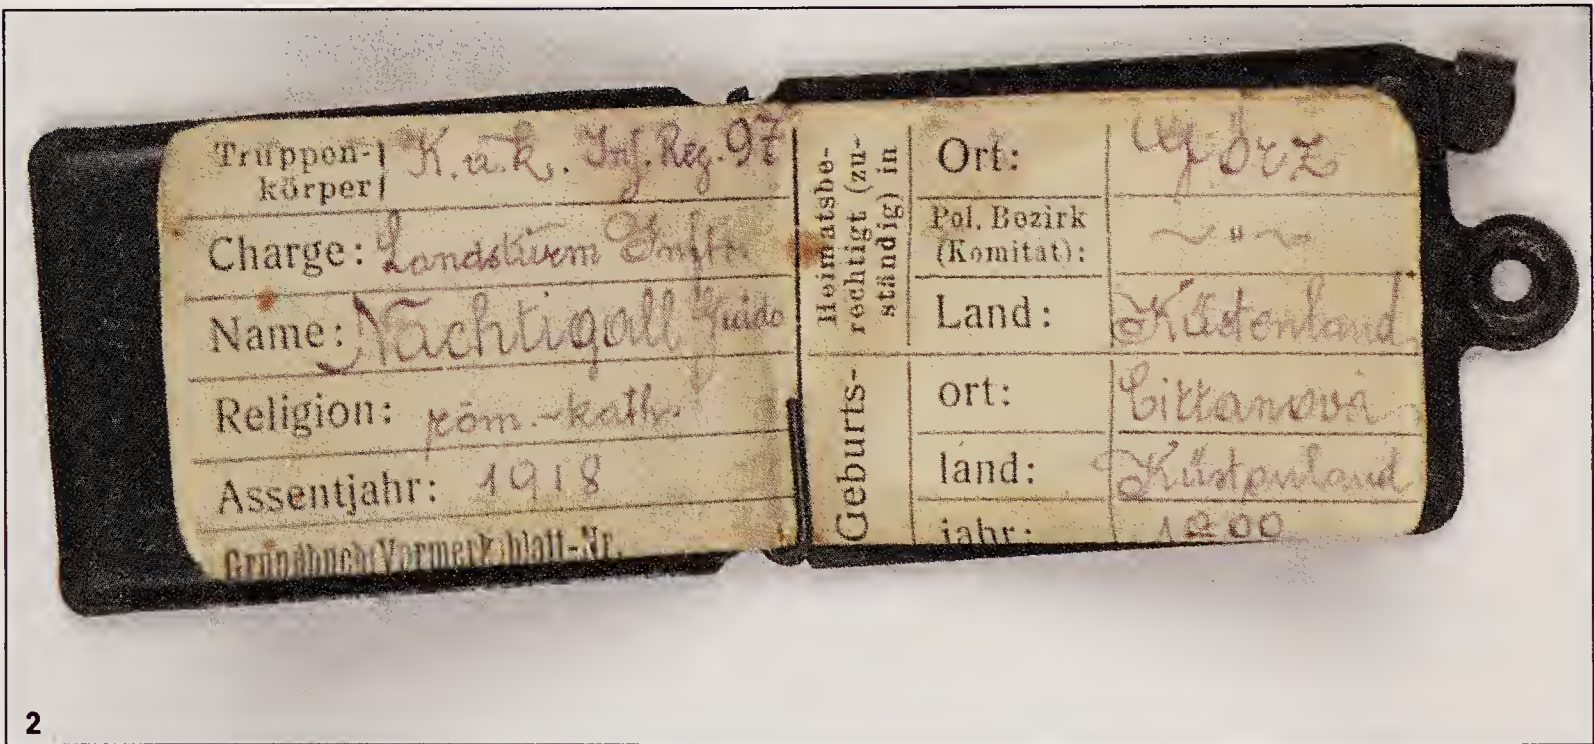 Truppen-
körper
K. u. k. Inf. Reg. 97
Charge: Landsturm Inftr.
Name: Nachtigall Guido
Religion: röm.-kath.
Assentjahr: 1918
Grundbuch(Vormerk)blatt-Nr.
Heimatsbe-
rechtigt (zu-
ständig) in
Ort: Görz
Pol. Bezirk
(Komitat): ~ " ~
Land: Küstenland
Geburts-
ort: Cittanova
land: Küstenland
jahr: 1900
2